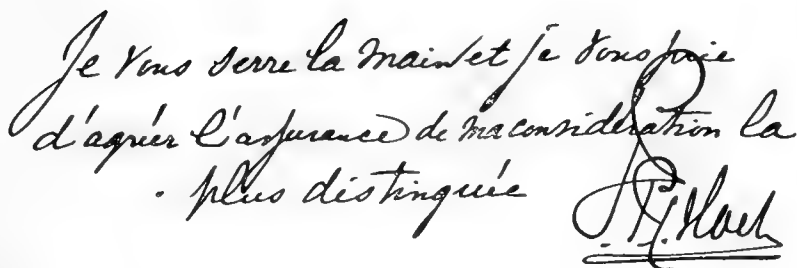 Je vous serre la main et je vous prie
d'agréer l'assurance de ma considération la
plus distinguée